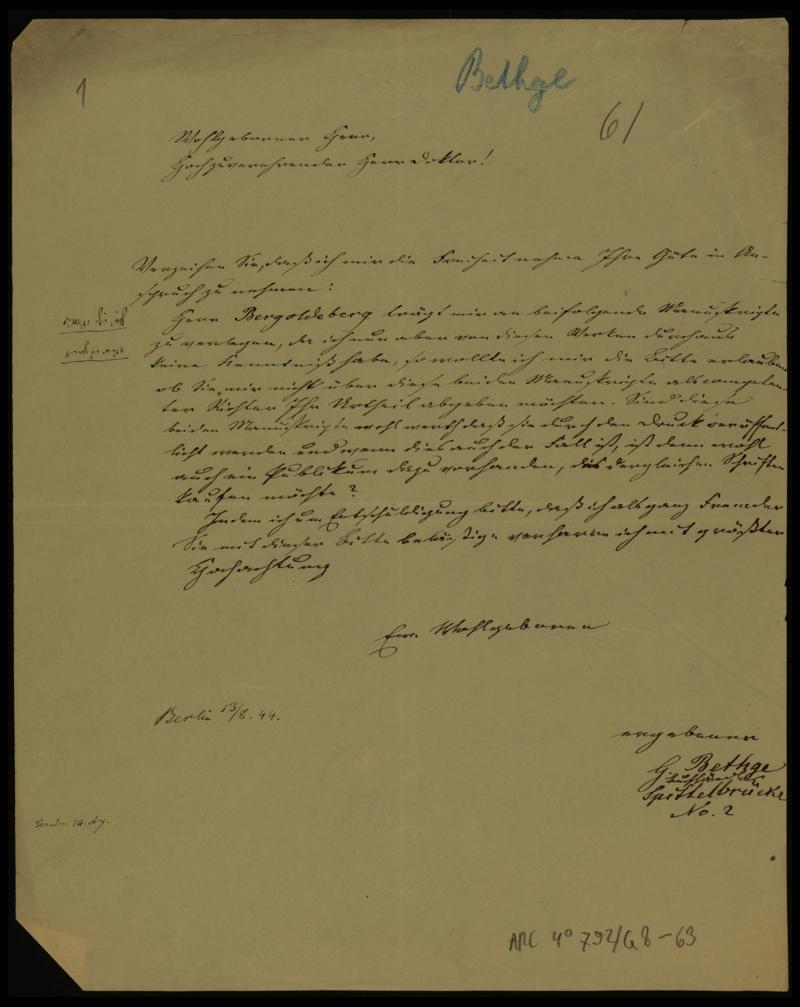 1
Bethge
61
Wohlgeborner Herr,
Hochzuverehrender Herr Doktor!
Verzeihen Sie, daß ich mir die Freiheit nehme Ihre Güte in An-
spruch zu nehmen:
Herr Bergoldeberg trägt mir an beifolgende Manuskripte
zu verlegen, da ich nun aber von diesen Werken durchaus
keine Kenntniß habe, so wollte ich mir die Bitte erlauben
ob Sie mir nicht über diese beiden Manuskripte als competen-
ter Richter Ihr Urtheil abgeben möchten. Sind diese
beiden Manuskripte wohl werth daß sie durch den Druck veröffent-
licht werden und wenn dies auch der Fall ist, ist denn wohl
auch ein Publikum dazu vorhanden, das dergleichen Schriften
kaufen möchte?
Indem ich um Entschuldigung bitte, daß ich als ganz Fremder
Sie mit dieser Bitte belästige verharre ich mit größter
Hochachtung
Ew. Wohlgeboren
Berlin 13/8. 44.
ergebener
G. Bethge
Buchhändler
Spittelbrücke
No. 2
14. Ag.
ARC 4° 792/G8-63